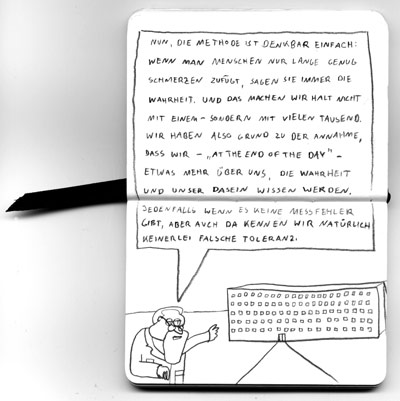 NUN, DIE METHODE IST DENKBAR EINFACH:
WENN MAN MENSCHEN NUR LANGE GENUG
SCHMERZEN ZUFÜGT, SAGEN SIE IMMER DIE
WAHRHEIT. UND DAS MACHEN WIR HALT NICHT
MIT EINEM – SONDERN MIT VIELEN TAUSEND.
WIR HABEN ALSO GRUND ZU DER ANNAHME,
DASS WIR – „AT THE END OF THE DAY" –
ETWAS MEHR ÜBER UNS, DIE WAHRHEIT
UND UNSER DASEIN WISSEN WERDEN.
JEDENFALLS WENN ES KEINE MESSFEHLER
GIBT, ABER AUCH DA KENNEN WIR NATÜRLICH
KEINERLEI FALSCHE TOLERANZ.